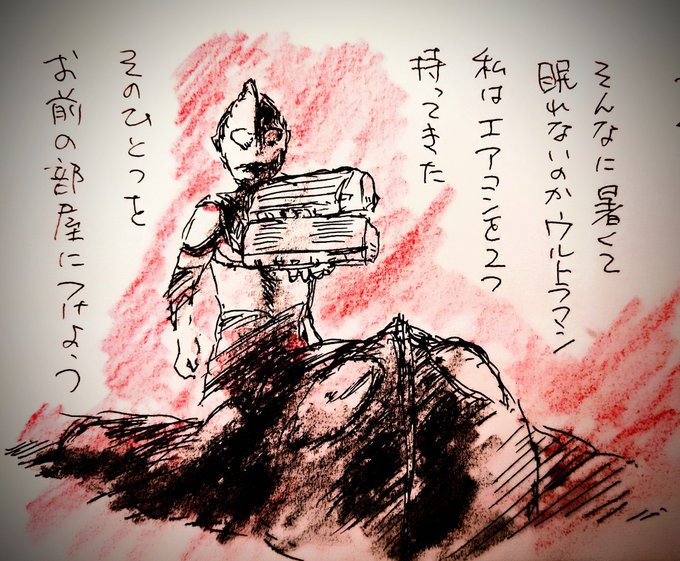 そんなに暑くて
眠れないのかウルトラマン
私はエアコンを2つ
持ってきた
そのひとつを
お前の部屋につけよう